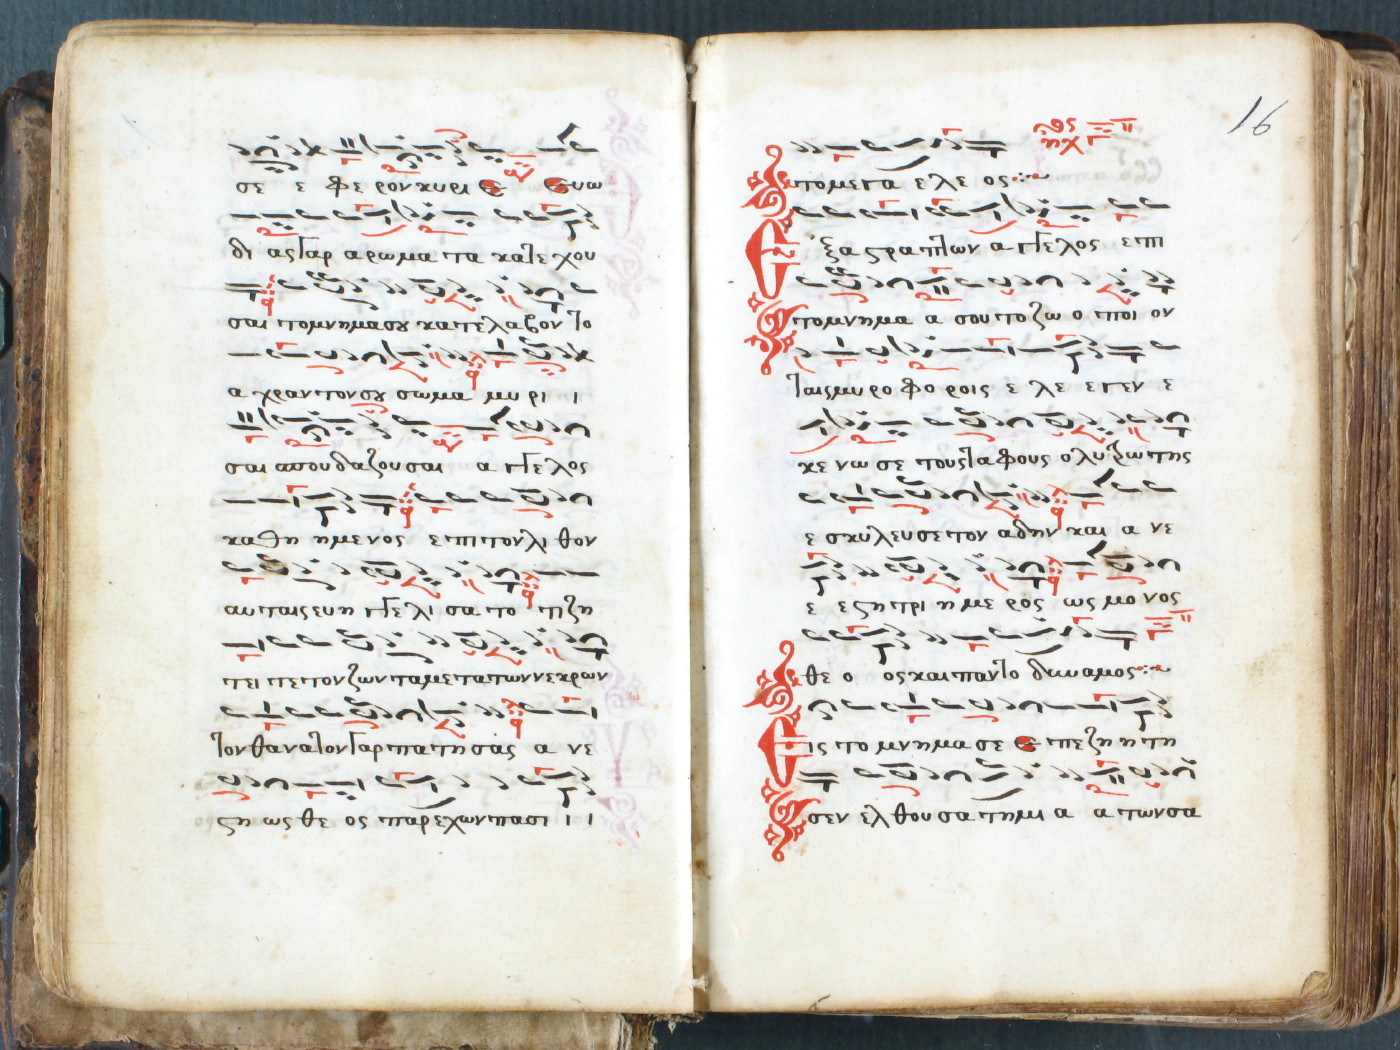 σε ε φε ρον κυρι ε Ευω
δι ας γαρ αρωμα τα κατε χου
σαι το μνημα σου κατελαβον το
α χραντον σου σωμα μυρι ι
σαι σπουδαζουσαι α γγελος
καθη ημενος επι τον λι θον
αυταις ευη γγελι σα το τι ζη
τει τε τον ζωντα μετα των νεκρων
τον θανατον γαρ πατησας α νε
στη ως θε ος παρεχων πασι ι ι
16
το μεγα ε λε ος
ηχος
Ε ξαστραπτων α γγελος επι
το μνημα α σου το ζω ο ποι ον
ταις μυρο φο ροις ε λε εγεν ε
κε νωσε τους ταφους ο λυτρωτης
ε σκυλευσε τον αδην και α νε
ε εστη τρι η με ρος ως μο νος
θε ο ος και παντο δυναμος
Εις το μνημα σε επεζη η τη
σεν ελθουσα τη μι α α των σα